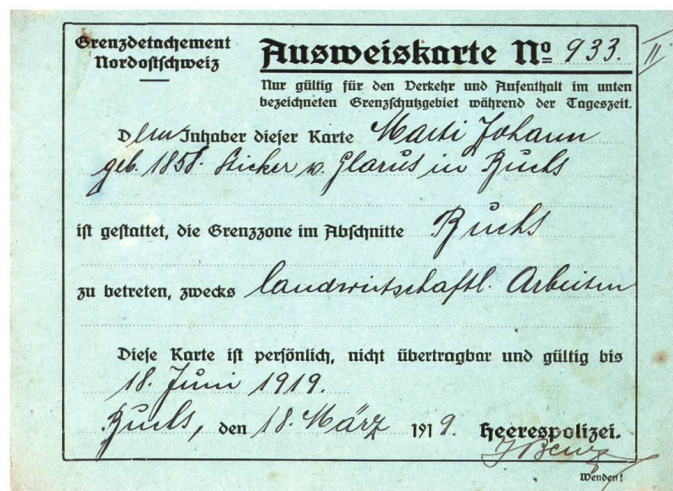 Grenzdetachement
Nordostschweiz
Ausweiskarte Nº 933. II
Nur gültig für den Verkehr und Aufenthalt im unten
bezeichneten Grenzschutzgebiet während der Tageszeit.
Dem Inhaber dieser Karte Marti Johann
geb. 1858. Sticker v. Glarus in Buchs
ist gestattet, die Grenzzone im Abschnitte Buchs
zu betreten, zwecks landwirtschaftl. Arbeiten
Diese Karte ist persönlich, nicht übertragbar und gültig bis
18. Juni 1919.
Buchs, den 18. März 1919. Heerespolizei.
Wenden!